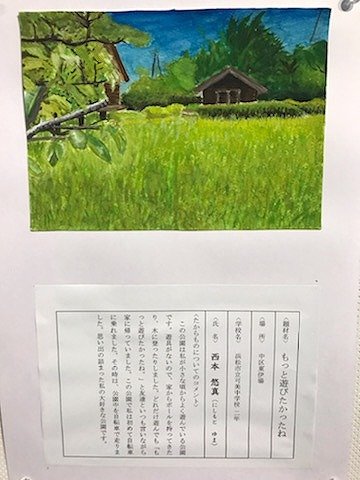 〈題材名〉 もっと遊びたかったね
〈場 所〉 中区東伊場
〈学校名〉 浜松市立可美中学校 二年
〈氏 名〉 西本 悠真 (にしもと ゆま)
〈たからものについてのコメント〉
この公園は私が小さな頃からよく遊んでいる公園
です。遊具がないので、家からボールを持ってきた
り、木に登ったりしました。どれだけ遊んでも「も
っと遊びたかったね。」と友達といつも言いながら
家に帰っていました。この公園で私は初めて自転車
に乗れました。その時は、公園中を自転車で走りま
した。思い出の詰まった私の大好きな公園です。